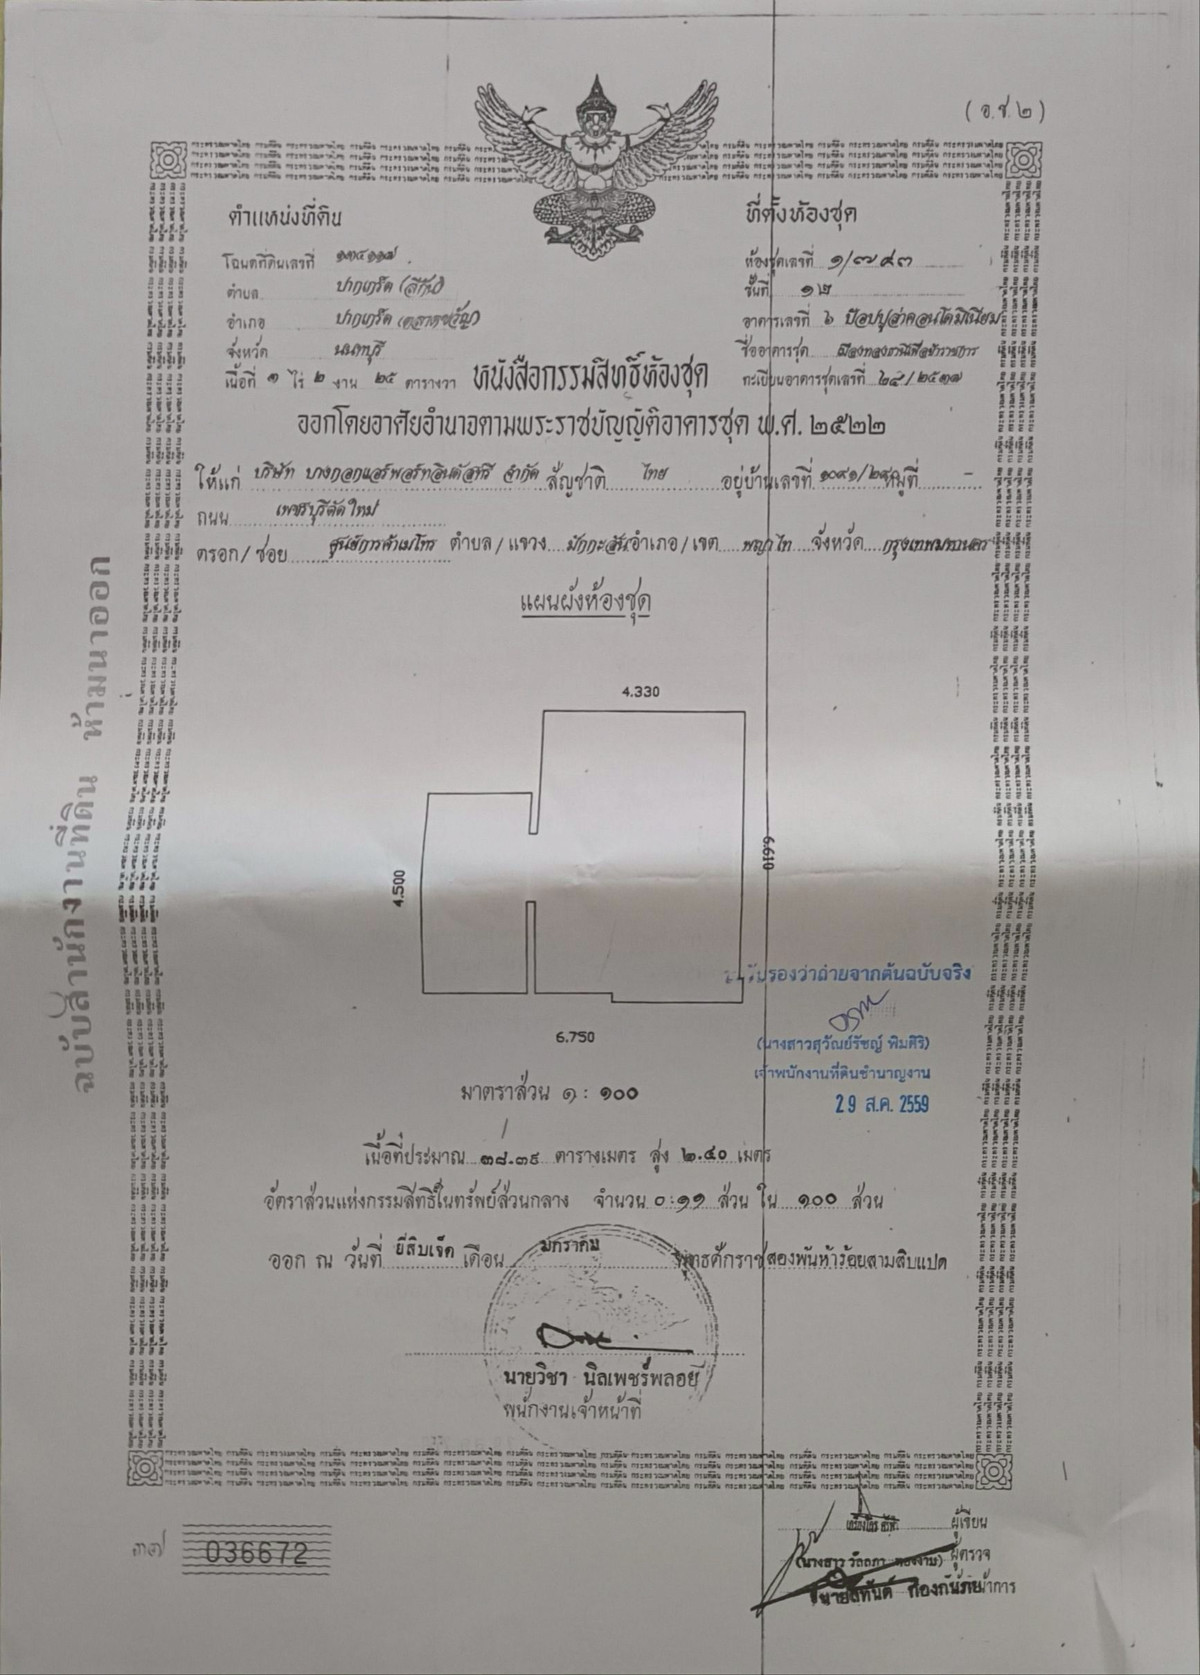 (อ.ช.๒)
ตำแหน่งที่ดิน
โฉนดที่ดินเลขที่
ตำบล ปากเกร็ด (สีกัน)
อำเภอ ปากเกร็ด (ตลาดขวัญ)
จังหวัด นนทบุรี
เนื้อที่ ๑ ไร่ ๒ งาน ๒๕ ตารางวา
ที่ตั้งห้องชุด
ห้องชุดเลขที่ ๑/๗๙๓
ชั้นที่ ๑๒
อาคารเลขที่ ๖ ป๊อปปูล่าคอนโดมิเนียม
ชื่ออาคารชุด เมืองทองธานีเพื่อข้าราชการ
ทะเบียนอาคารชุดเลขที่ ๒๔/๒๕๓๗
หนังสือกรรมสิทธิ์ห้องชุด
ออกโดยอาศัยอำนาจตามพระราชบัญญัติอาคารชุด พ.ศ. ๒๕๒๒
ให้แก่ บริษัท บางกอกแอร์พอร์ทอินดัสทรี จำกัด สัญชาติ ไทย อยู่บ้านเลขที่ หมู่ที่ -
ถนน เพชรบุรีตัดใหม่
ตรอก/ซอย ศูนย์การค้าเมโทร ตำบล/แขวง มักกะสัน อำเภอ/เขต พญาไท จังหวัด กรุงเทพมหานคร
แผนผังห้องชุด
4.330
4.500
6.610
6.750
รับรองว่าถ่ายจากต้นฉบับจริง
(นางสาวสุวัณย์รัชญ์ พิมศิริ)
เจ้าพนักงานที่ดินชำนาญงาน
29 ส.ค. 2559
มาตราส่วน ๑ : ๑๐๐
เนื้อที่ประมาณ ๓๘.๓๙ ตารางเมตร สูง ๒.๔๐ เมตร
อัตราส่วนแห่งกรรมสิทธิ์ในทรัพย์ส่วนกลาง จำนวน ๐.๑๑ ส่วน ใน ๑๐๐ ส่วน
ออก ณ วันที่ ยี่สิบเจ็ด เดือน มกราคม พุทธศักราช สองพันห้าร้อยสามสิบแปด
นายวิชา นิลเพชร์พลอย
พนักงานเจ้าหน้าที่
ฉบับสำนักงานที่ดิน ห้ามนำออก
๓๗
036672
ผู้เขียน
ผู้ตรวจ